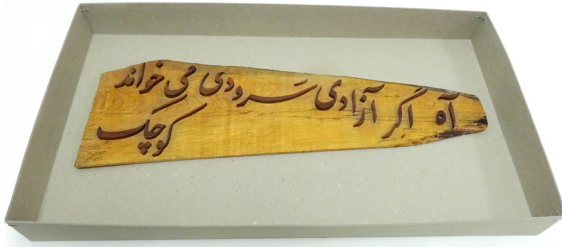 آه اگر آزادی سرودی می خواند
کوچک